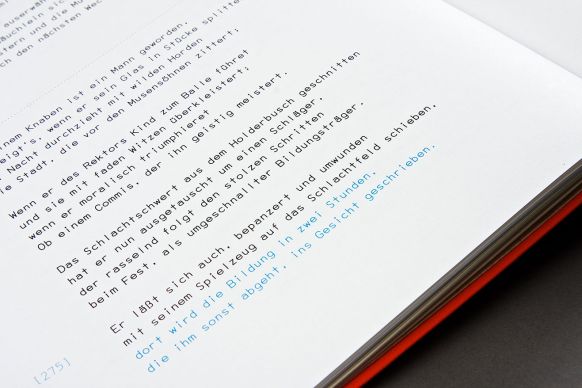 auserwäh
äuchlein sic
stern und die Mu
ch den nächsten Wec
inem Knaben ist ein Mann geworden,
eigt's, wenn er sein Glas in Stücke splitte
Nacht durchzieht mit wilden Horden
ie Stadt, die vor den Musensöhnen zittert;
Wenn er des Rektors Kind zum Balle führet
und sie mit faden Witzen überkleistert;
wenn er moralisch triumphieret
Ob einem Commis, der ihn geistig meistert.
Das Schlachtschwert aus dem Holderbusch geschnitten
hat er nun ausgetauscht um einen Schläger,
der rasselnd folgt den stolzen Schritten
beim Fest, als umgeschnallter Bildungsträger.
Er läßt sich auch, bepanzert und umwunden
mit seinem Spielzeug auf das Schlachtfeld schieben,
dort wird die Bildung in zwei Stunden,
die ihm sonst abgeht, ins Gesicht geschrieben.
[275]